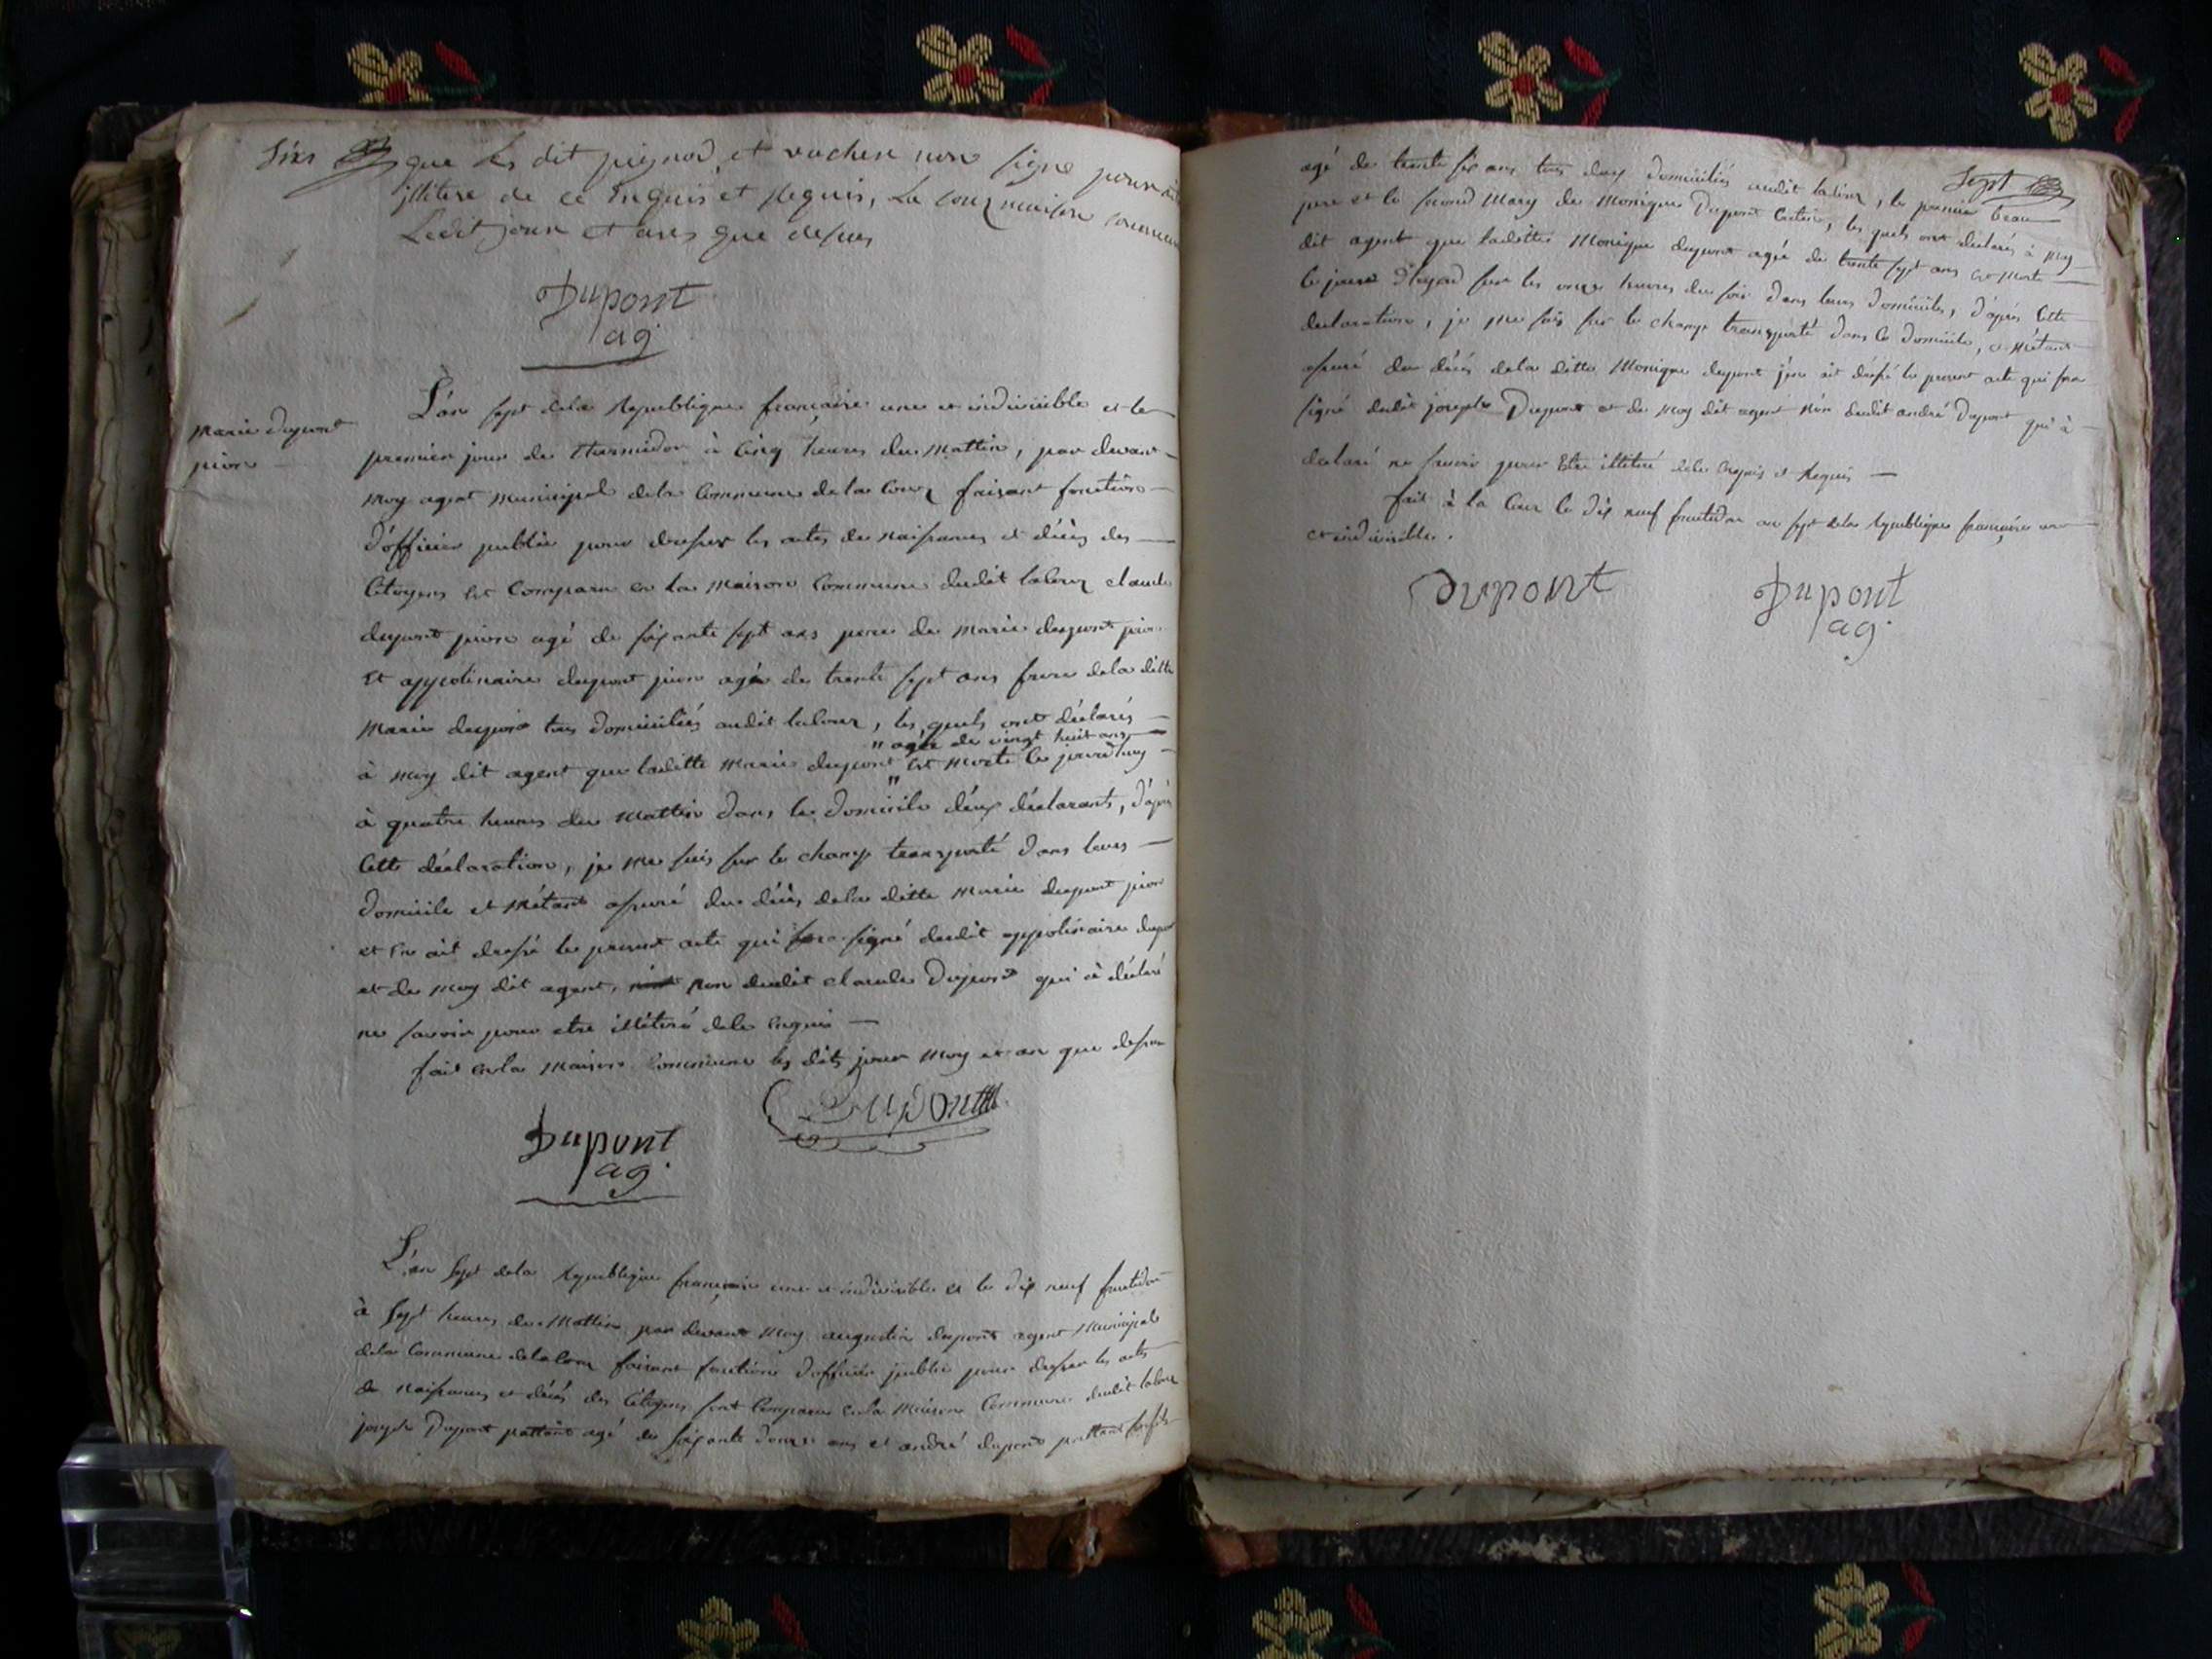 Six que les dit pignod et vacher non signé pour
illitere de ce Enquis et Requis, La Cour maison commune
Ledit jour et ans que dessus
Dupont
ag.
Marie dupont
pion
L'an sept de la Republique française une et indivisible et le
premier jour de thermidor à cinq heures du mattin, par devant
moy agent municipal de la Commune de la Cour faisant fonction
d'officier public pour dresser les actes de naissances et décès des
Citoyens est comparu en la maison Commune dudit la Cour claude
dupont pion agé de soixante sept ans pere de marie dupont pion
et appolinaire dupont pion agé de trente sept ans frere de la ditte
Marie dupont tous domiciliés audit la Cour, les quels ont déclarés
" agée de vingt huit ans
à moy dit agent que laditte marie dupont " est morte ce jourd'huy
à quatre heures du mattin dans le domicile d'eux déclarants, d'après
cette déclaration, je me suis sur le champ transporté dans leurs
domicile et m'étant assuré du décès de la ditte marie dupont pion
et en ait dressé le present acte qui sera signé dudit appolinaire dupont
et de moy dit agent, non dudit claude Dupont qui à déclaré
ne savoir pour etre illétéré de le enquis
fait en la maison Commune les dits jour moy et an que dessus
Dupont
Dupont
ag.
L'an sept de la Republique française une et indivisible et le dix neuf fructidor
à sept heures du mattin par devant moy augustin dupont agent municipal
de la Commune de la Cour faisant fonctions d'officier public pour dresser les actes
de naissances et décès des Citoyens sont comparu en la maison Commune dudit la Cour
joseph Dupont agé de soixante douze ans et andré dupont
Sept
agé de trente six ans tous deux domiciliés audit la Cour, le premier beau
pere et le second mary de Monique Dupont, les quels ont déclarés à moy
dit agent que laditte Monique dupont agée de trente sept ans est morte
le jour d'hyer sur les onze heures du soir dans leurs domiciles, d'après cette
declaration, je me suis sur le champ transporté dans le domicile, et m'étant
assuré du décés de la ditte Monique dupont j'en ait dressé le present acte qui sera
signé dudit joseph Dupont et de moy dit agent non dudit andré Dupont qui à
declaré ne savoir pour Etre illitéré de le enquis et Requis
fait à la Cour le dix neuf fructidor an sept de la Republique française une
et indivisible.
Dupont
Dupont
ag.